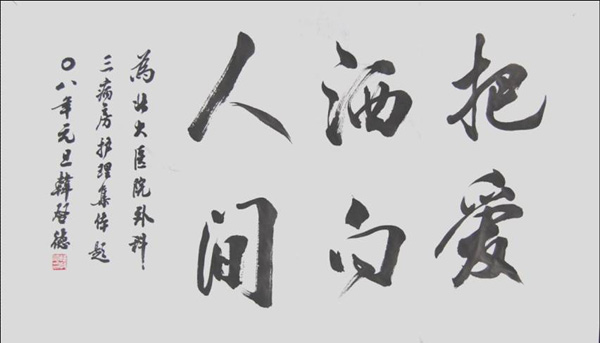 把爱
洒向
人间
為北大医院外科
三病房护理集体题
〇八年元旦韓啓德